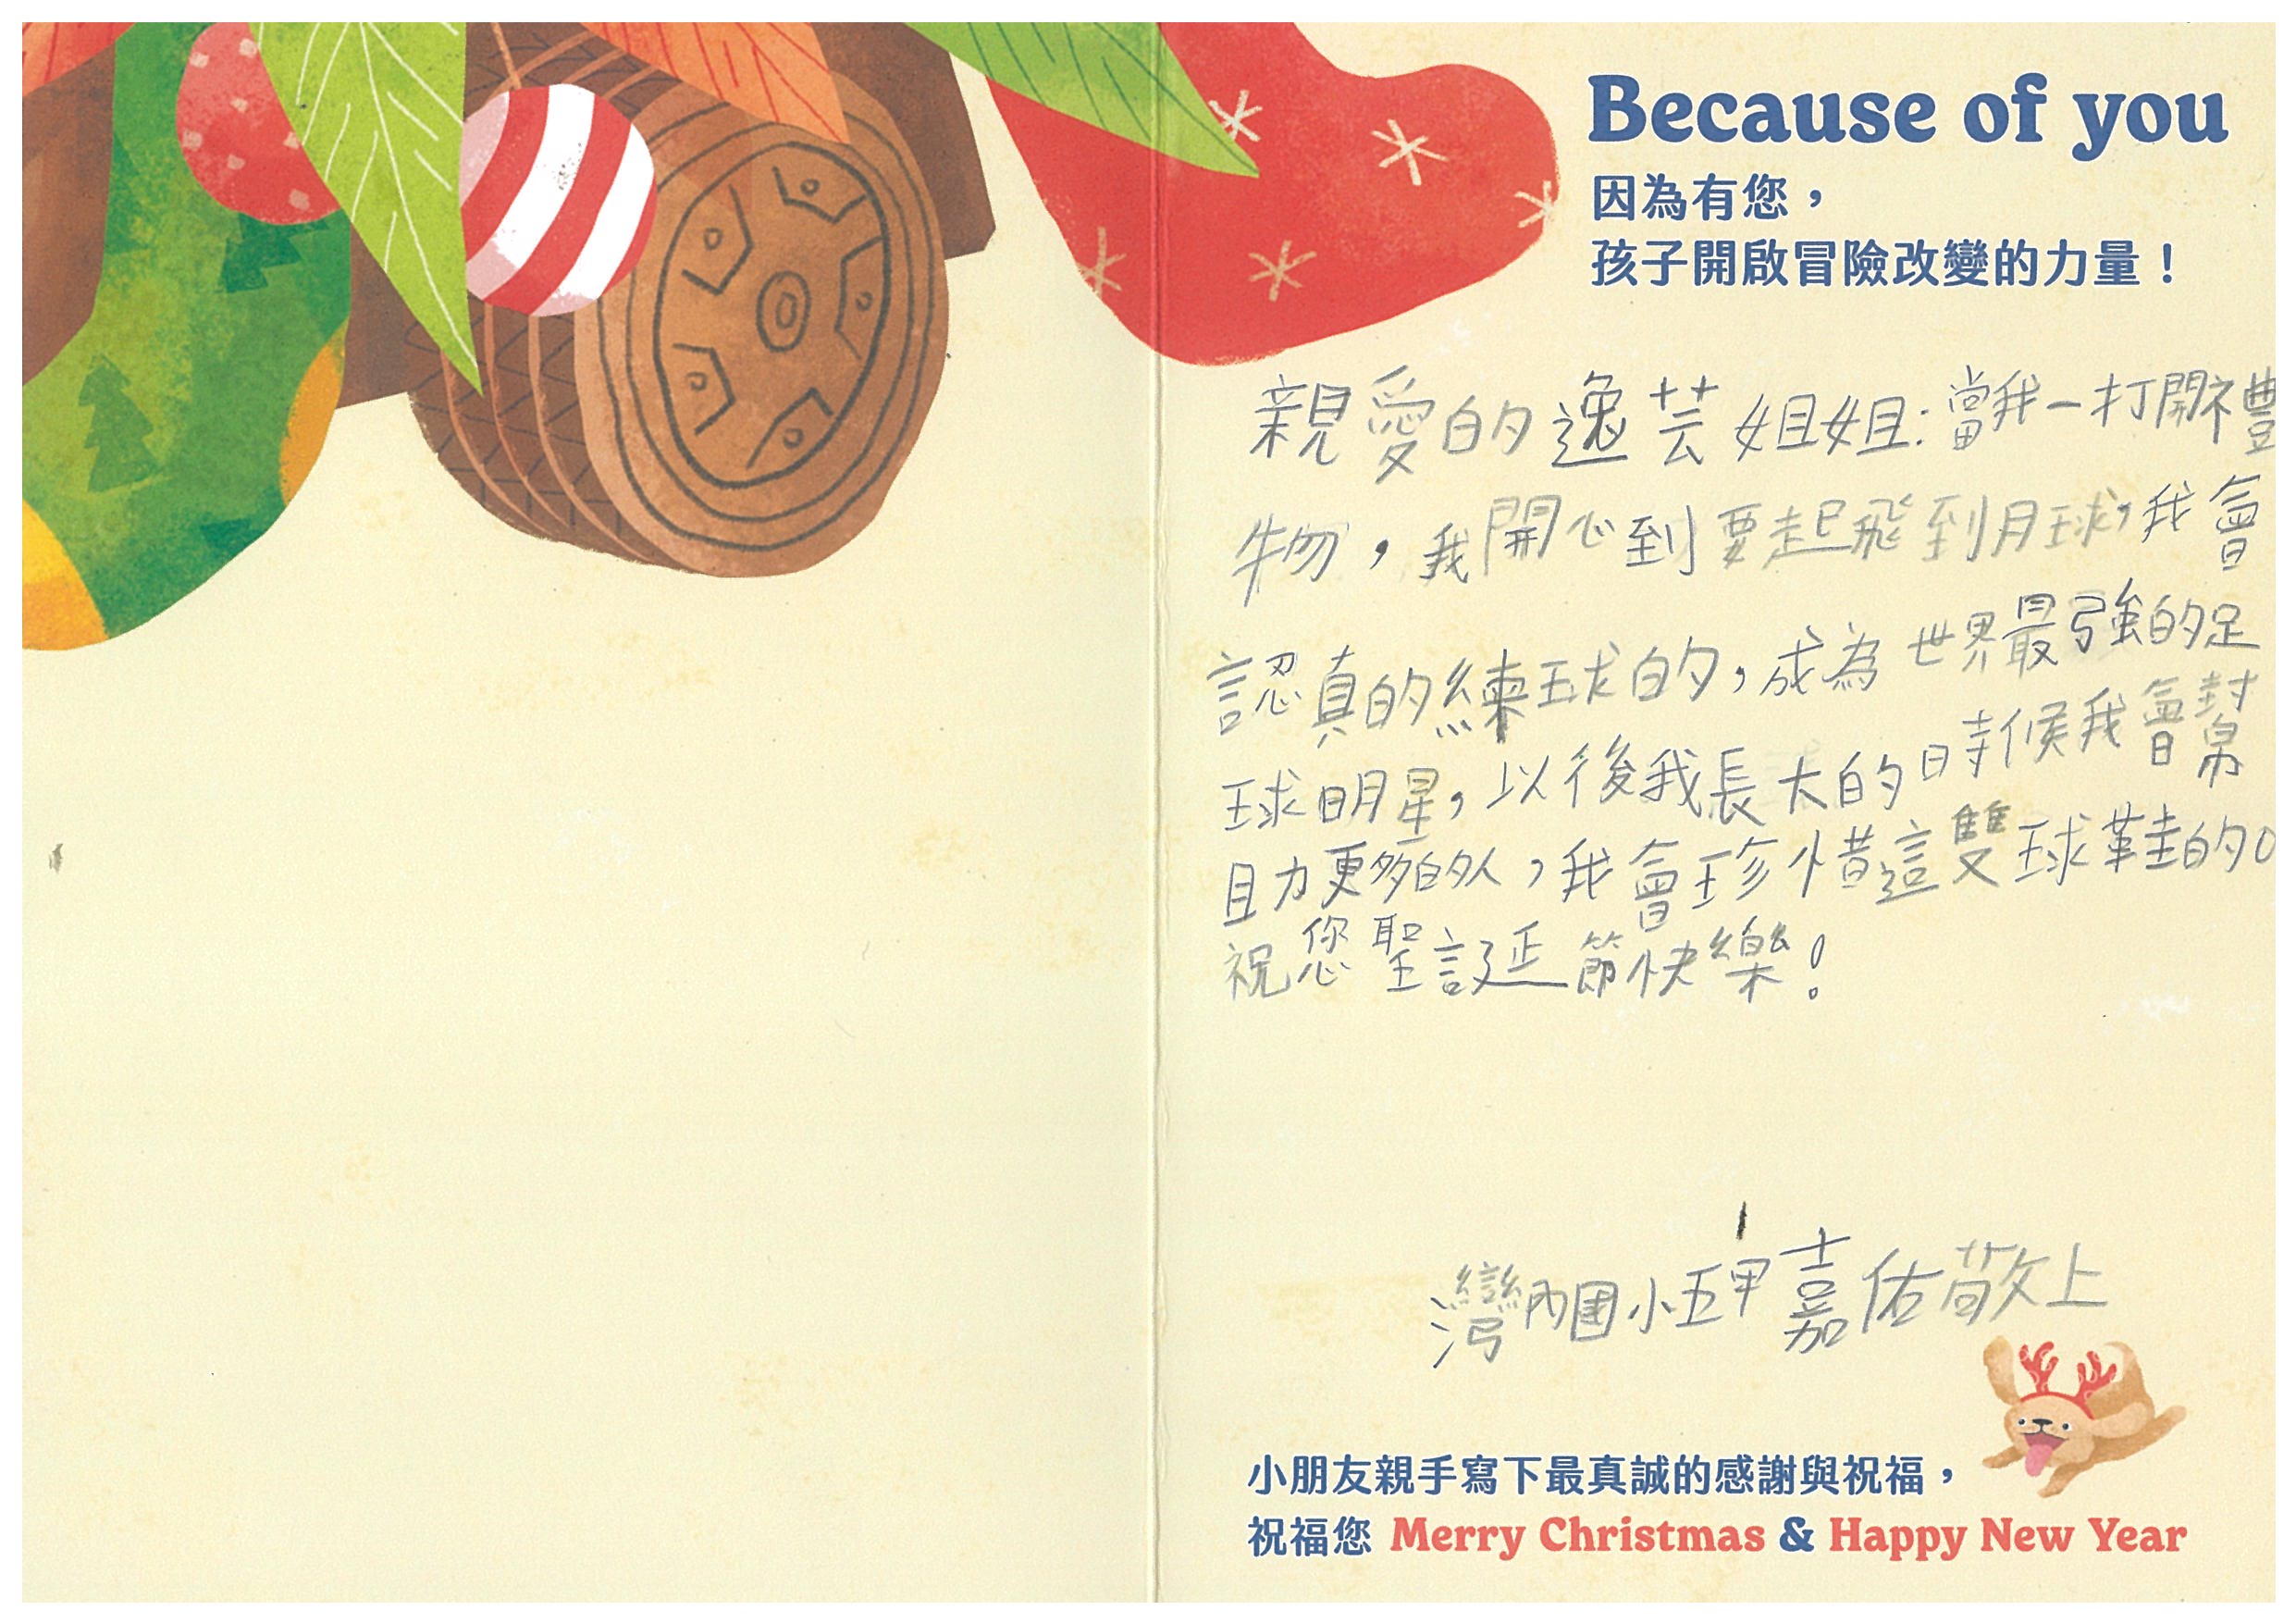 Because of you
因為有您，
孩子開啟冒險改變的力量！
親愛的逸芸姐姐:當我一打開禮
物，我開心到要起飛到月球，我會
認真的練球的，成為世界最強的足
球明星，以後我長大的時候我會幫
助力更多的人，我會珍惜這雙球鞋的。
祝您聖誕節快樂！
灣內國小五甲嘉佑敬上
小朋友親手寫下最真誠的感謝與祝福，
祝福您 Merry Christmas & Happy New Year